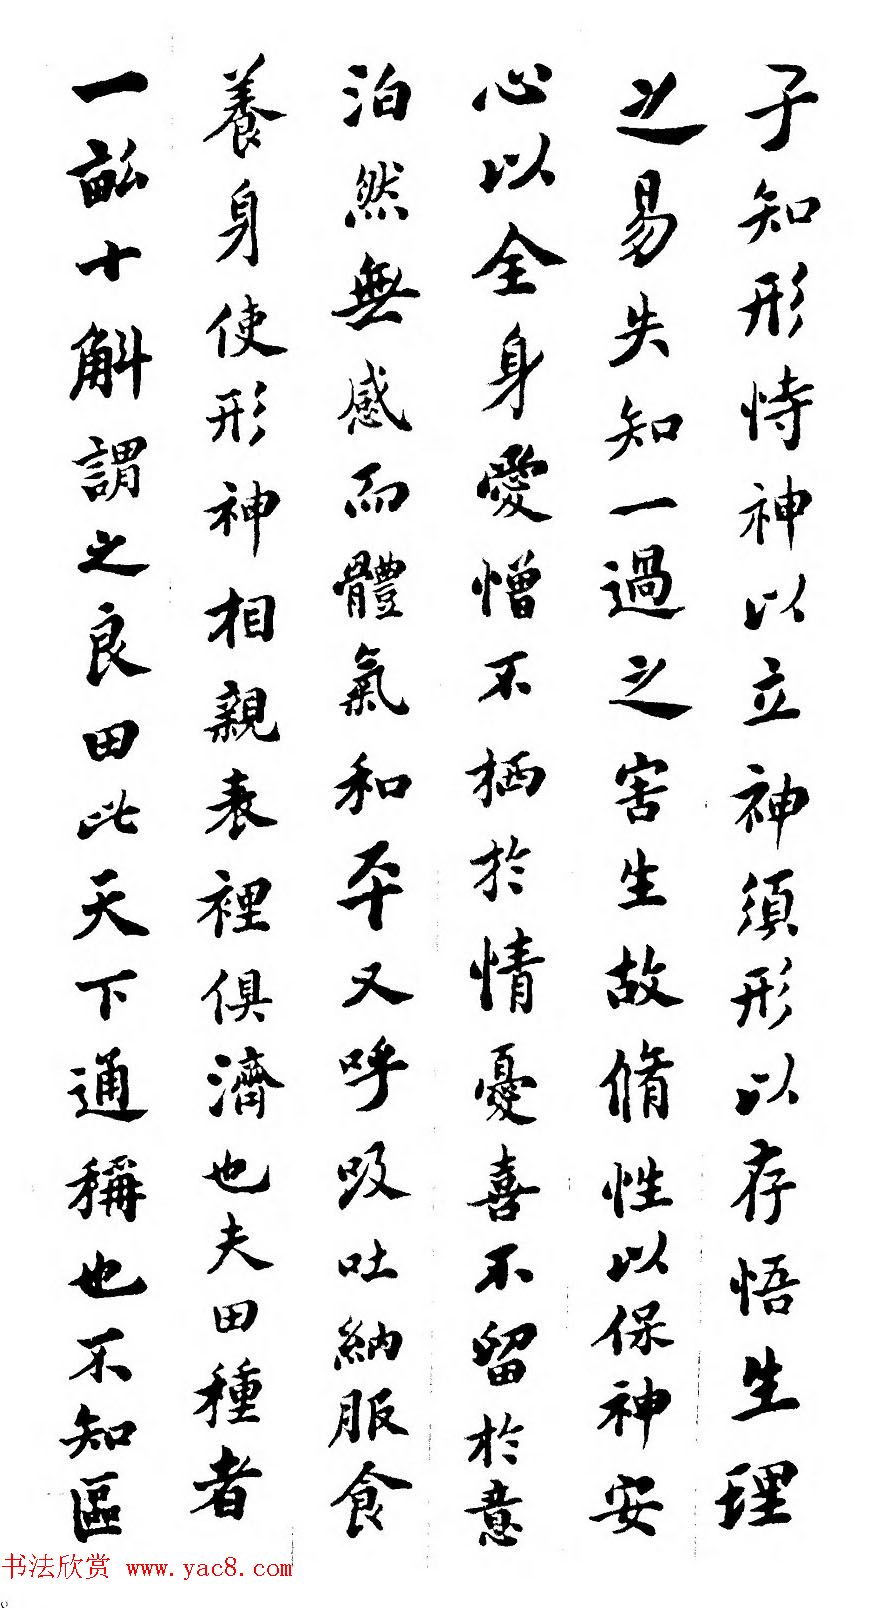 子知形恃神以立神須形以存悟生理
之易失知一過之害生故脩性以保神安
心以全身愛憎不栖於情憂喜不留於意
泊然無感而體氣和平又呼吸吐納服食
養身使形神相親表裡俱濟也夫田種者
一畝十斛謂之良田此天下通稱也不知區
书法欣赏 www.yac8.com